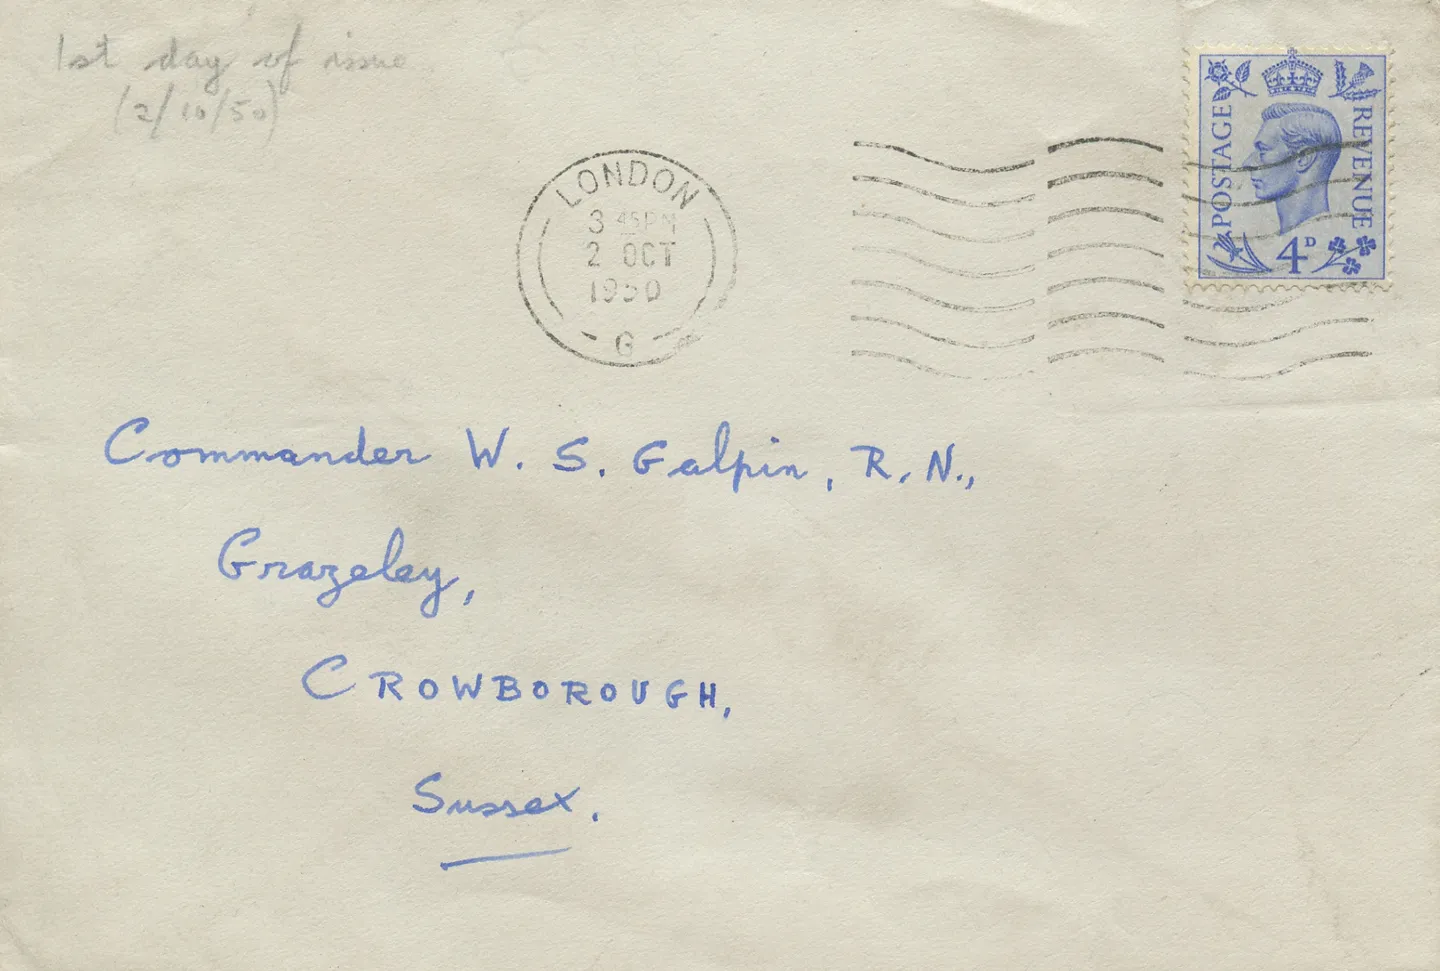 1st day of issue
(2/10/50)
LONDON
3 45PM
2 OCT
1950
G
POSTAGE
REVENUE
4D
Commander W. S. Galpin, R.N.,
Grazeley,
CROWBOROUGH,
Sussex.